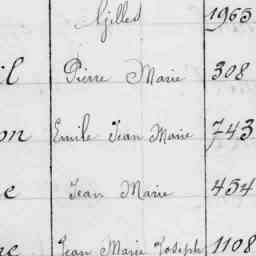 Gilles 1965
il Pierre Marie 308
on Emile Jean Marie 743
e Jean Marie 454
re Jean Marie Joseph 1108